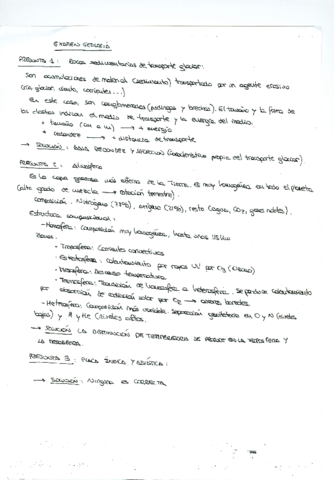 EXAMEN GEOLOGÍA
PREGUNTA 1: Rocas sedimentarias de transporte glaciar.
Son acumulaciones de material (sedimento) transportado por un agente erosivo
(río, glaciar, viento, corrientes...)
En este caso, son conglomerados (pudingas y brechas). El tamaño y la forma de
los clastos indican el medio de transporte y la energía del medio.
+ tamaño → + energía
+ redondez → + distancia de transporte
→ SOLUCIÓN: BAJA REDONDEZ Y SELECCIÓN (característica propia del transporte glaciar).
PREGUNTA 2: Atmósfera
Es la capa gaseosa más externa de la Tierra. Es muy homogénea en todo el planeta
(alto grado de mezcla → rotación terrestre).
Composición: Nitrógeno (78%), oxígeno (21%), resto (agua, CO2, gases nobles).
Estructura composicional:
- Homosfera: composición muy homogénea, hasta unos
zonas:
+ Troposfera: Corrientes convectivas
+ Estratosfera: calentamiento por rayos UV por O3
+ Mesosfera: Descenso temperaturas
+ Termosfera: Transición de homosfera a heterosfera. Se produce calentamiento
por absorción de radiación solar por O2 → auroras boreales
- Heterosfera: Composición más variable. Separación gravitatoria en O y N (niveles
bajos) y H y He (niveles altos).
→ SOLUCIÓN: LA DISMINUCIÓN DE TEMPERATURA SE PRODUCE EN LA TROPOSFERA Y
LA MESOSFERA.
PREGUNTA 3: PLACA ÍNDICA Y ASIÁTICA:
→ SOLUCIÓN: Ninguna es CORRECTA